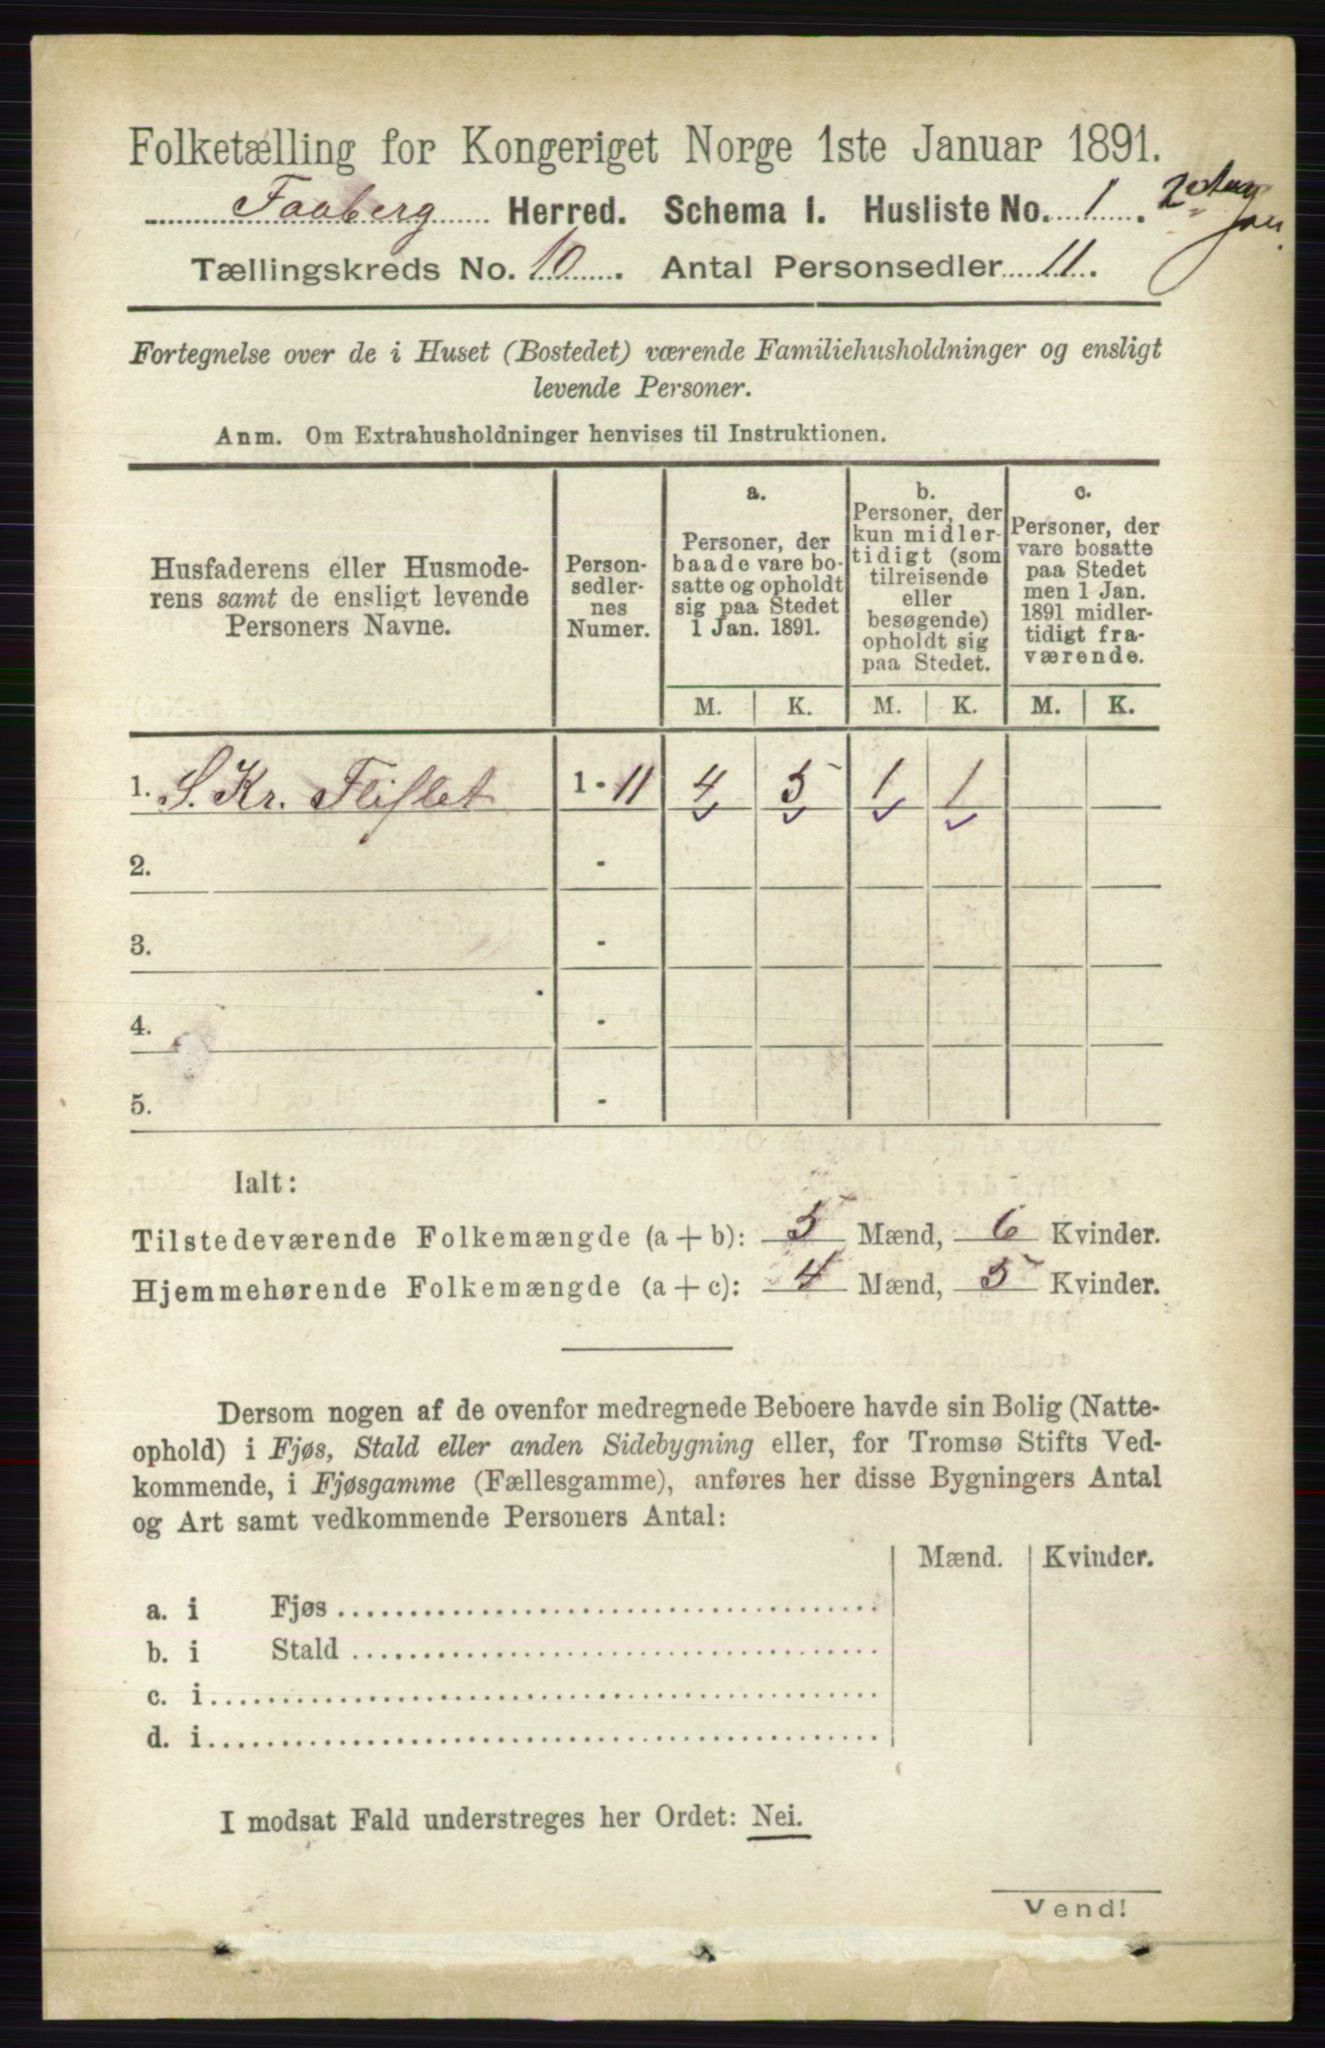 Folketælling for Kongeriget Norge 1ste Januar 1891.
Faaberg Herred. Schema I. Husliste No. 1.
Tællingskreds No. 10. Antal Personsedler 11.
Fortegnelse over de i Huset (Bostedet) værende Familiehusholdninger og ensligt
levende Personer.
Anm. Om Extrahusholdninger henvises til Instruktionen.
Husfaderens eller Husmode-
rens samt de ensligt levende
Personers Navne.
Person-
sedler-
nes
Numer.
a.
Personer, der
baade vare bo-
satte og opholdt
sig paa Stedet
1 Jan. 1891.
b.
Personer, der
kun midler-
tidigt (som
tilreisende
eller
besøgende)
opholdt sig
paa Stedet.
c.
Personer, der
vare bosatte
paa Stedet
men 1 Jan.
1891 midler-
tidigt fra-
værende.
M. K. M. K. M. K.
1. S. Kr. Fliflet 1 - 11 4 5 1 1
2. -
3. -
4. -
5. -
Ialt:
Tilstedeværende Folkemængde (a + b): 5 Mænd, 6 Kvinder.
Hjemmehørende Folkemængde (a + c): 4 Mænd, 5 Kvinder.
Dersom nogen af de ovenfor medregnede Beboere havde sin Bolig (Natte-
ophold) i Fjøs, Stald eller anden Sidebygning eller, for Tromsø Stifts Ved-
kommende, i Fjøsgamme (Fællesgamme), anføres her disse Bygningers Antal
og Art samt vedkommende Personers Antal:
Mænd. Kvinder.
a. i Fjøs
b. i Stald
c. i
d. i
I modsat Fald understreges her Ordet: Nei.
Vend!